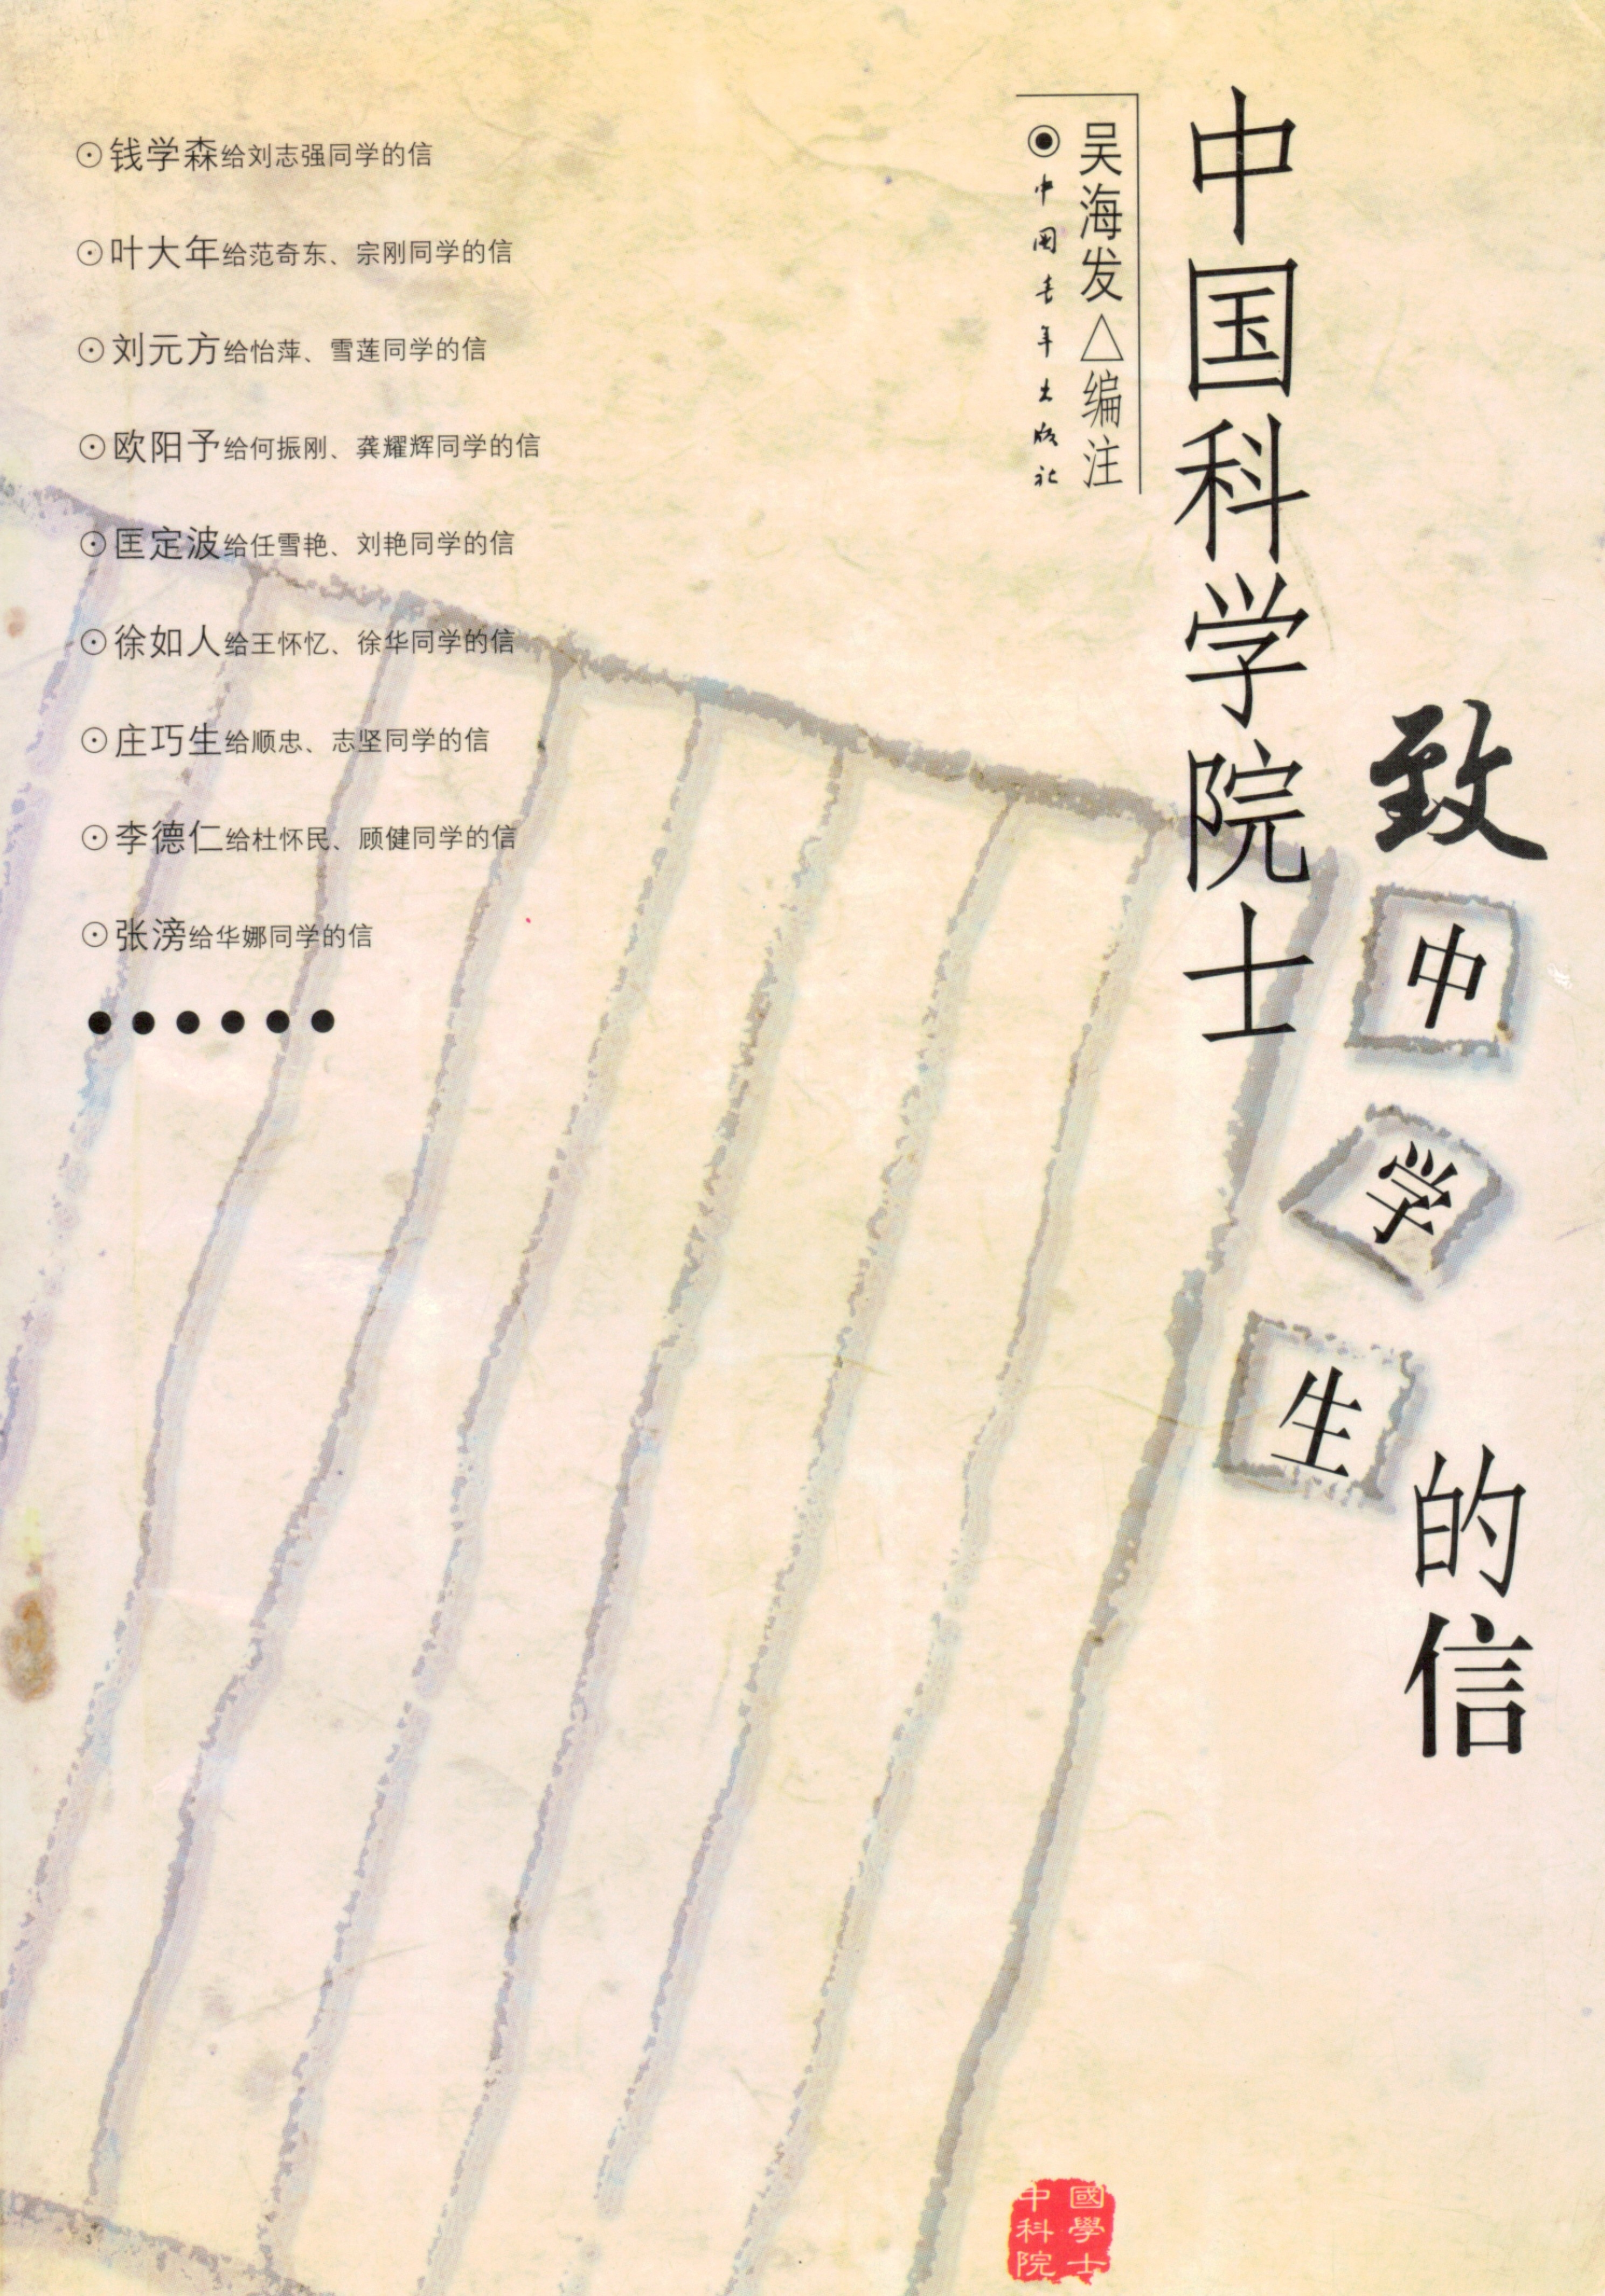 中国科学院士
致
中
学
生
的信
吴海发△编注
中国青年出版社
⊙钱学森给刘志强同学的信
⊙叶大年给范奇东、宗刚同学的信
⊙刘元方给怡萍、雪莲同学的信
⊙欧阳予给何振刚、龚耀辉同学的信
⊙匡定波给任雪艳、刘艳同学的信
⊙徐如人给王怀忆、徐华同学的信
⊙庄巧生给顺忠、志坚同学的信
⊙李德仁给杜怀民、顾健同学的信
⊙张滂给华娜同学的信
●●●●●●
中國
科學
院士